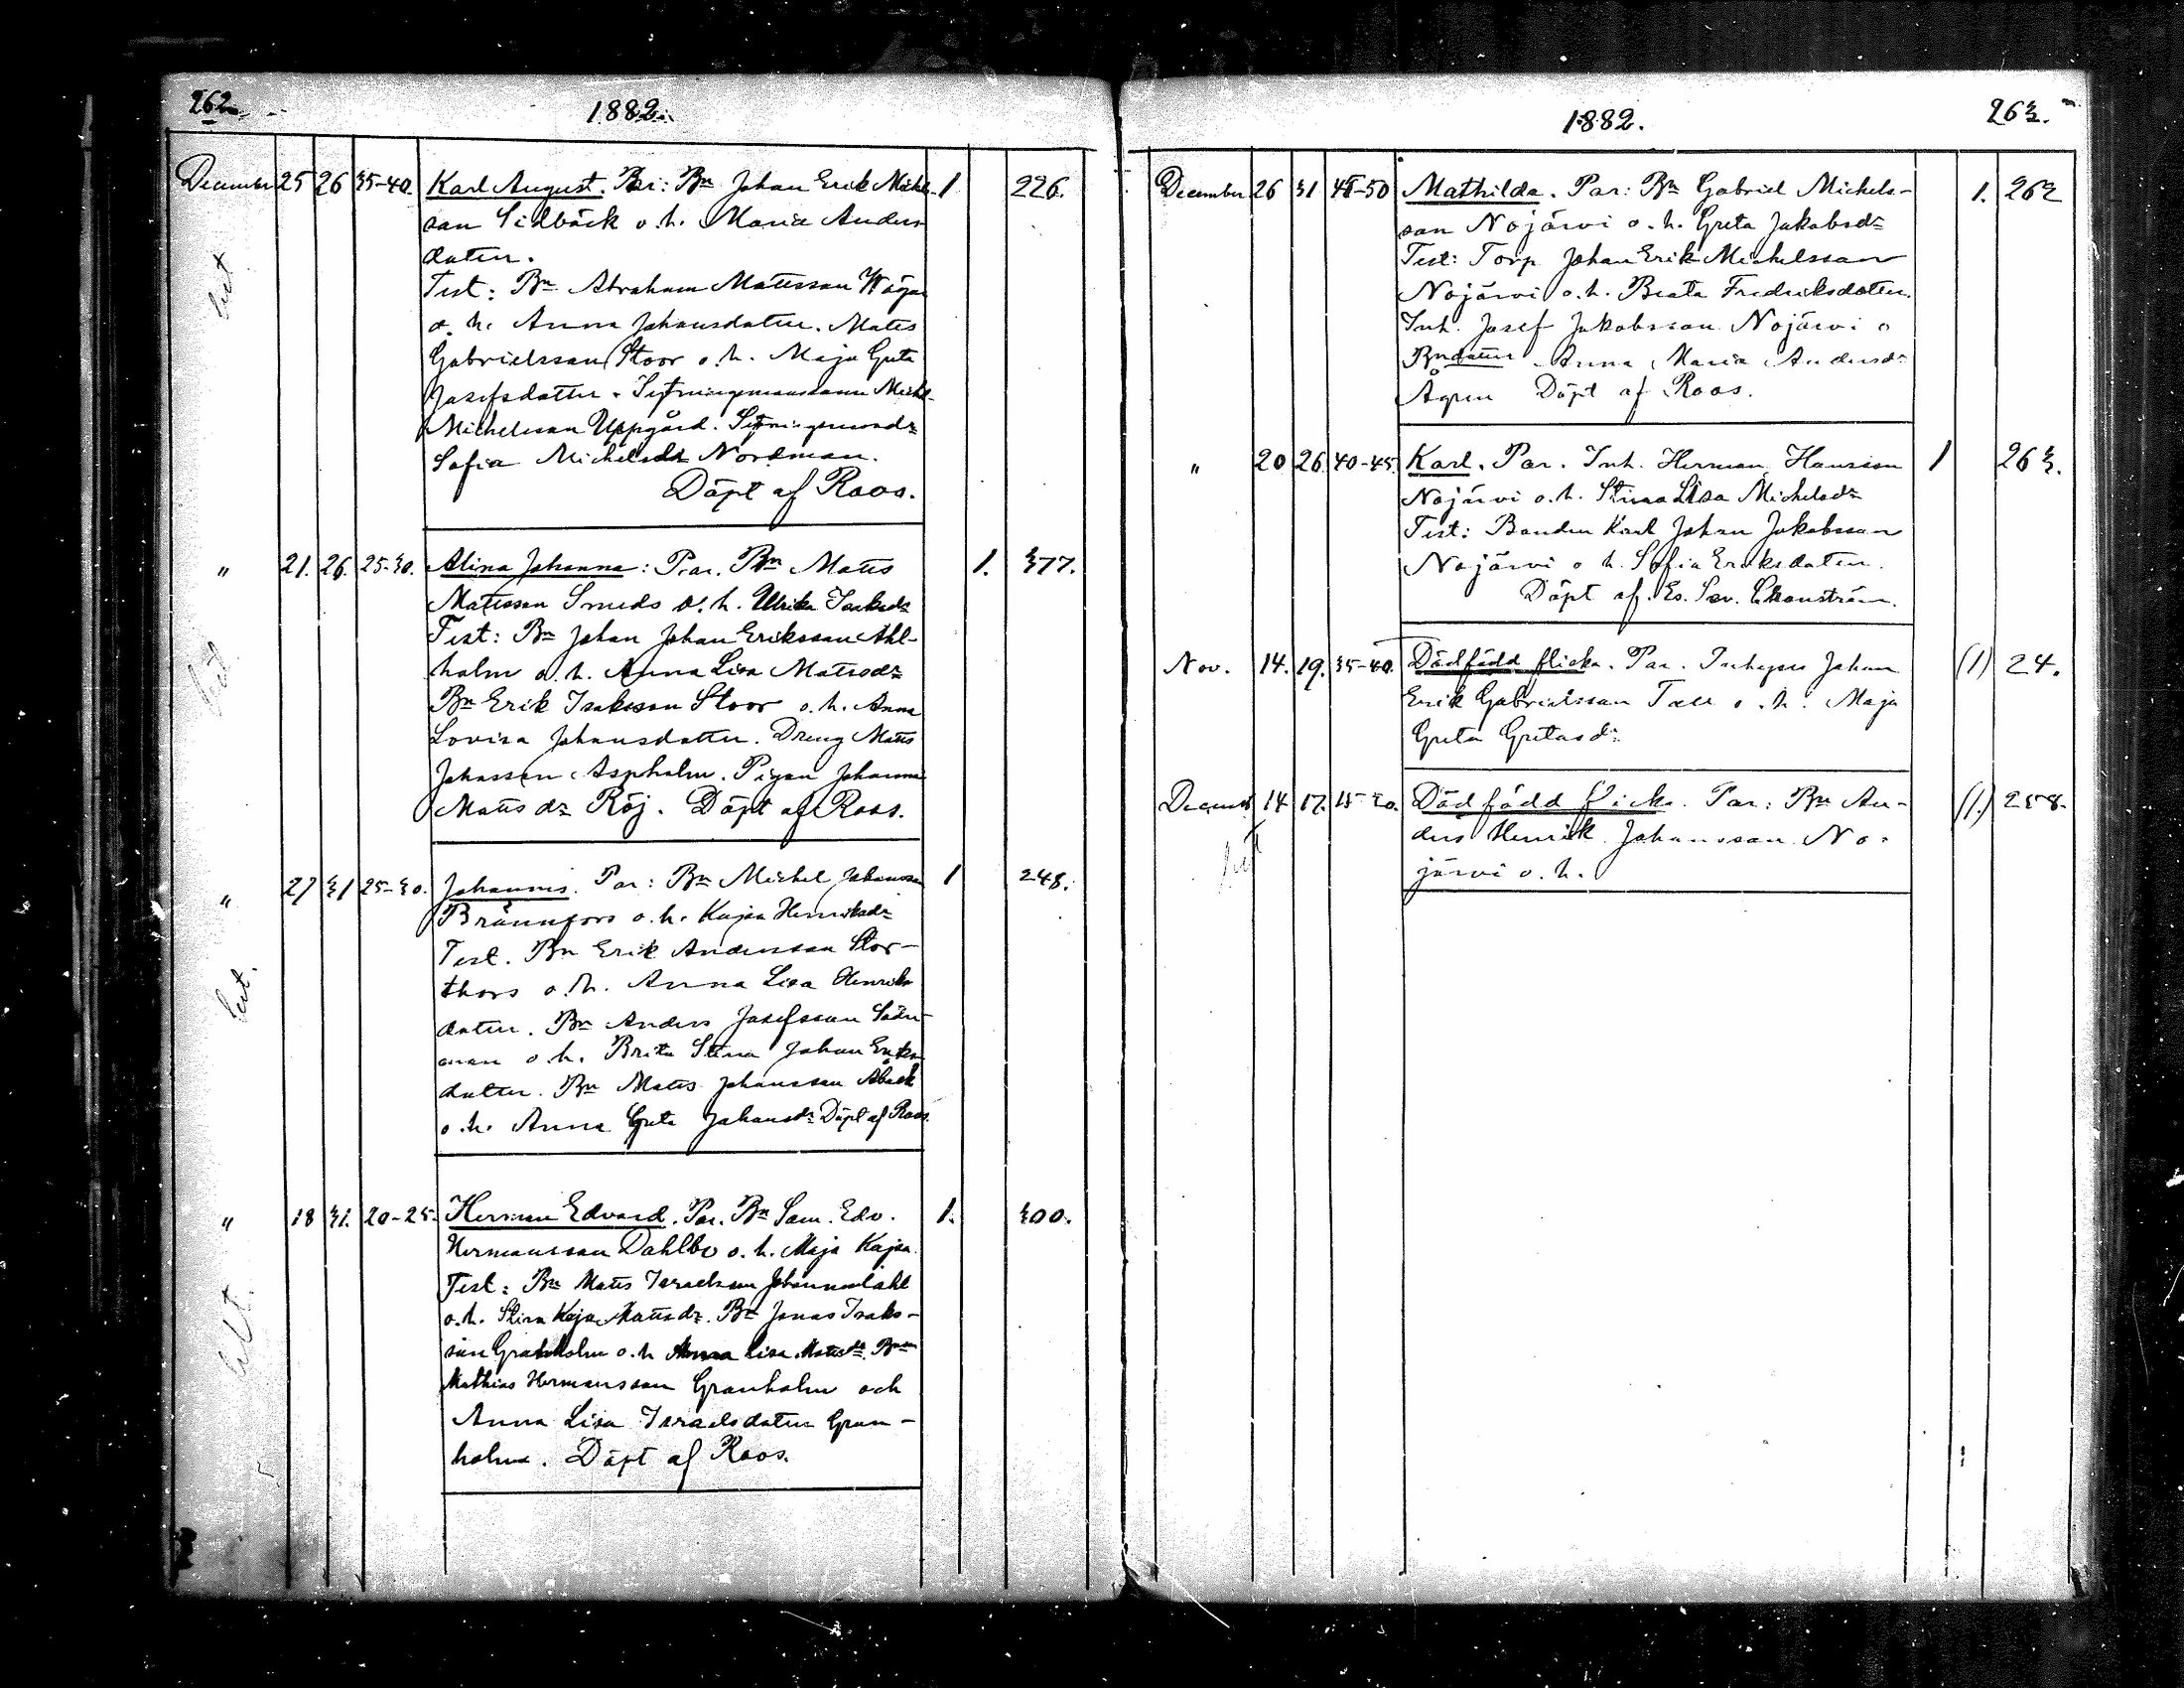 262.
1882.
December 25 26 35-40. Karl August. Par: Bn Johan Erik Michels- 1 226.
son Sidbäck o. h. Maria Anders
dotter.
Test: Bn Abraham Mattsson Wägar
o. h. Anna Johansdotter. Matts
Gabrielsson Stoor o. h. Maja Greta
Josefsdotter. Sytningsmanssonen Michel
Michelsson Uppgård. Sytningsmansdr
Sofia Michelsdr Nordman.
Döpt af Roos.
" 21. 26. 25-30. Alina Johanna: Par. Bn Matts 1. 377.
Mattsson Smeds o. h. Ulrika Isaksdr
Test: Bn Johan Johan Eriksson Ahl-
holm o. h. Anna Lisa Mattsdr
Bn Erik Isaksson Stoor o. h. Anna
Lovisa Johansdotter. Dreng Matts
Johansson Aspholm. Pigan Johanna
Matts dr Röj. Döpt af Roos.
" 27 31 25-30. Johannes. Par: Bn Michel Johansson 1 248.
Brännfors o. h. Kajsa Henriksdr
Test. Bn Erik Andersson Stor-
thors o. h. Anna Lisa Henriks
dotter. Bn Anders Josefsson Söder-
man o. h. Brita Stina Johan Eriks
dotter. Bn Matts Johansson Åback
o. h. Anna Greta Johansdr Döpt af Roos.
" 18 31. 20-25. Herman Edvard. Par. Bn Sam. Edv. 1. 300.
Hermansson Dahlbo o. h. Maja Kajsa.
Test: Bn Matts Israelsson Johannesdahl
o. h. Stina Kajsa Mattsdr. Bn Jonas Isaks-
son Granholm o. h Anna Lisa Mattsdr. Bn
Mathias Hermansson Granholm och
Anna Lisa Israelsdotter Gran-
holm. Döpt af Roos.
1882.
263.
December 26 31 45-50 Mathilda. Par: Bn Gabriel Michels- 1. 262
son Nojärvi o. h. Greta Jakobsdr
Test: Torp. Johan Erik Michelsson
Nojärvi o. h. Beata Fredriksdotter.
Inh. Josef Jakobsson Nojärvi o
Bndotter Anna Maria Andersdr
Ågren Döpt af Roos.
" 20 26. 40-45. Karl. Par. Inh. Herman Hansson 1 263.
Nojärvi o. h. Stina Lisa Michelsdr
Test: Bonden Karl Johan Jakobsson
Nojärvi o h. Sofia Eriksdotter.
Döpt af.
Nov. 14. 19. 35-40. Dödfödd flicka. Par. Inhyses Johan (1) 24.
Erik Gabrielsson Tall o. h. Maja
Greta Gretasdr
December 14 17. 15-20. Dödfödd flicka. Par: Bn An- (1.) 258.
ders Henrik Johansson No-
järvi o. h.